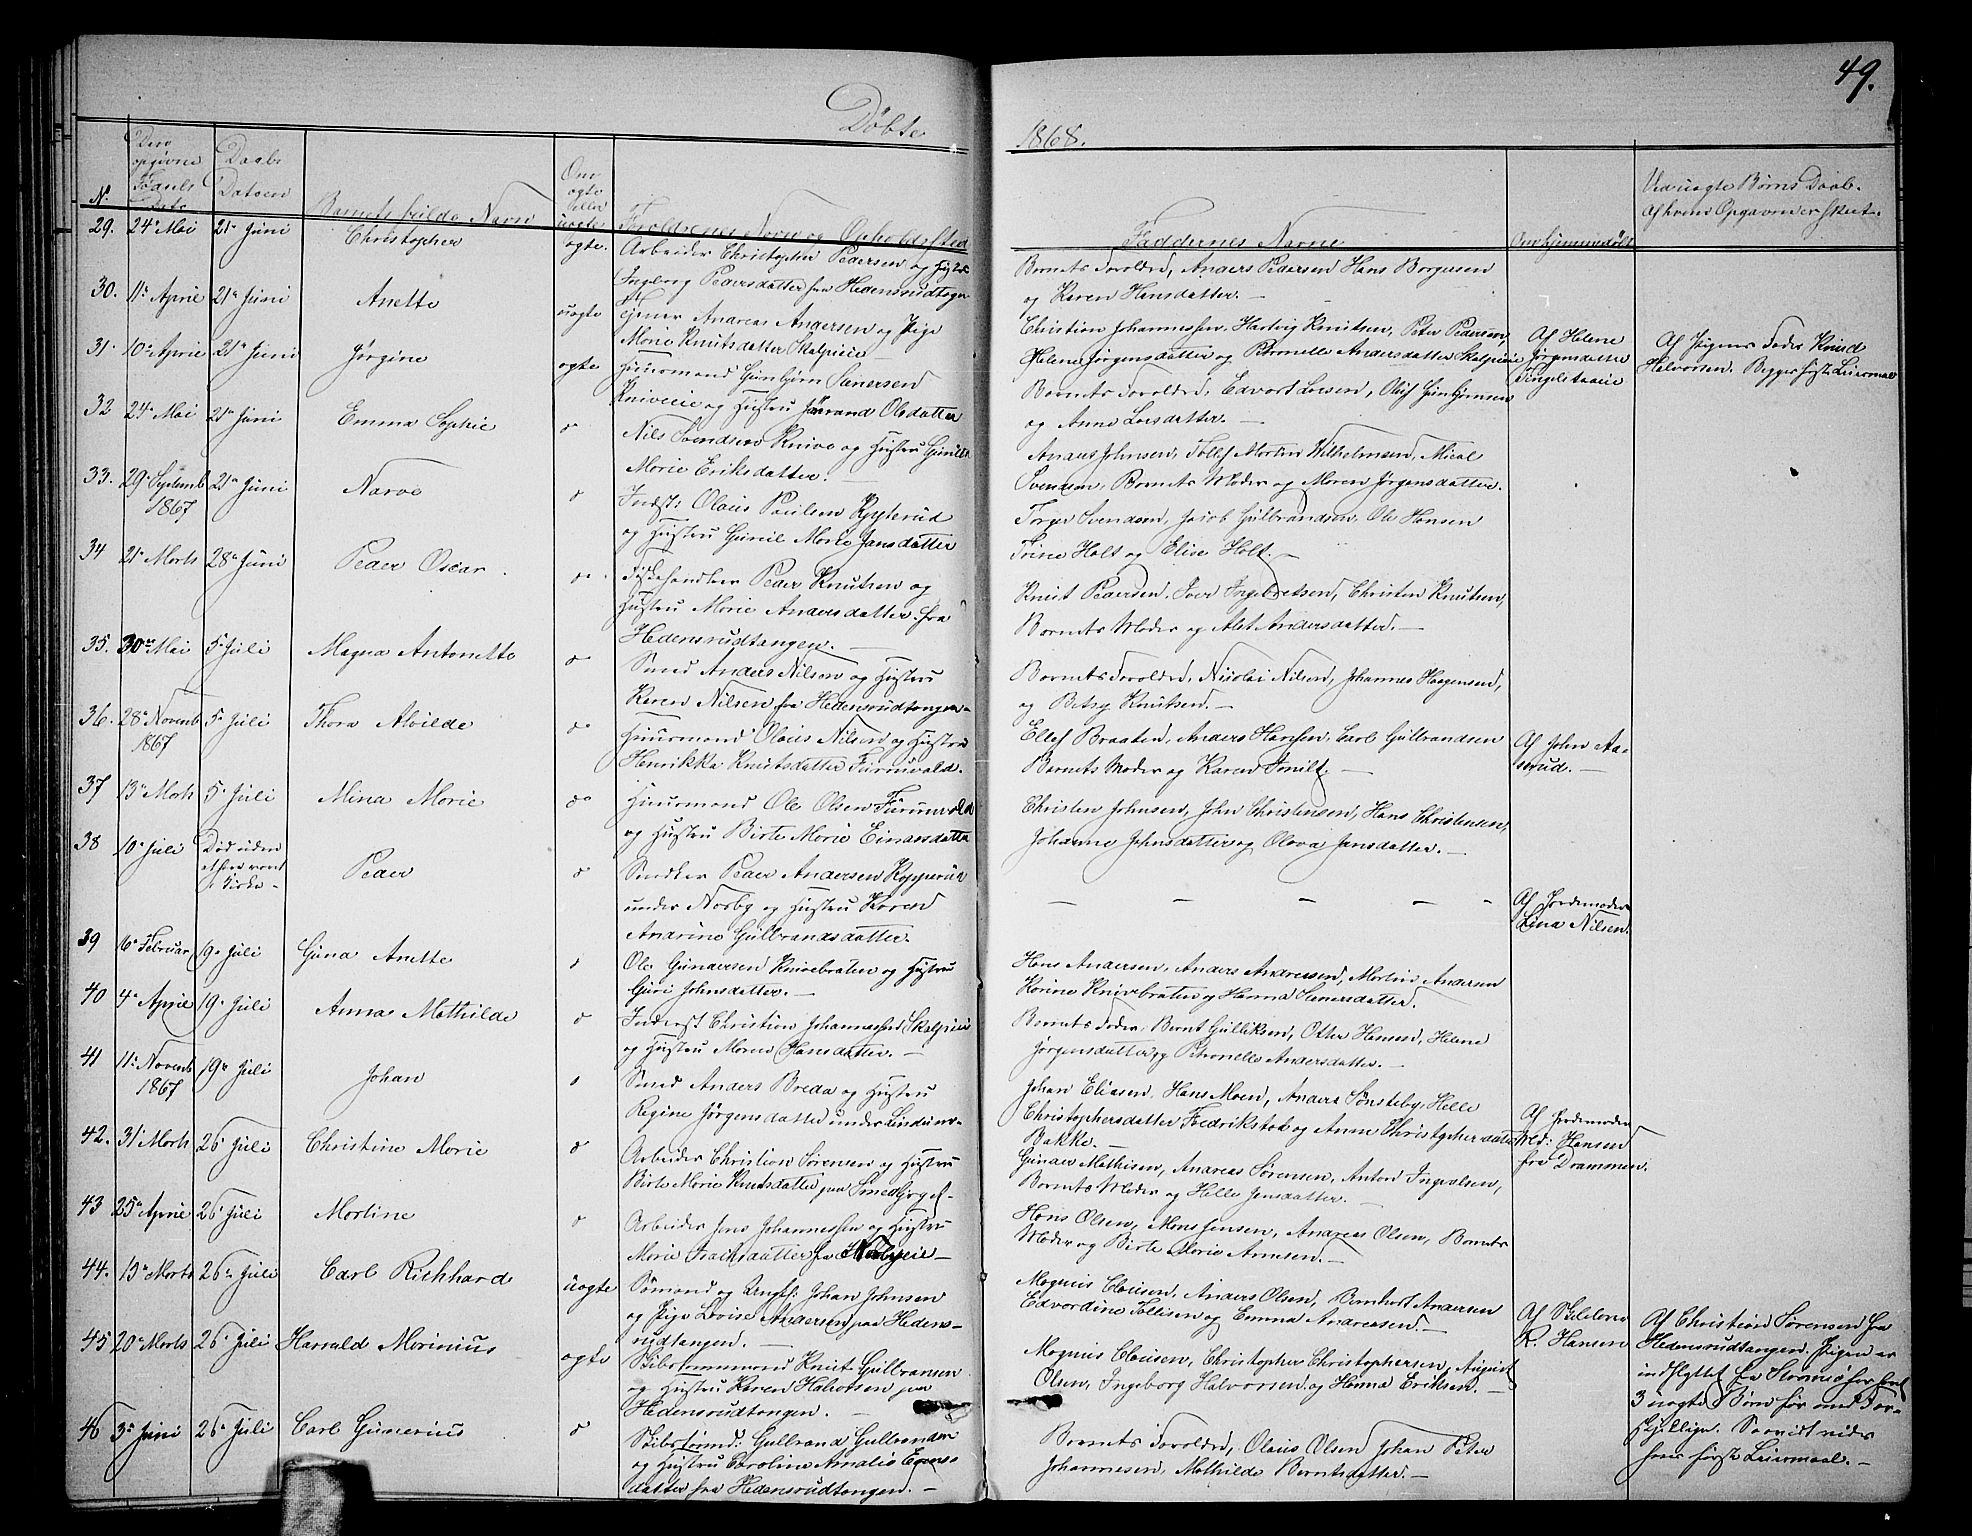 49.
Döbte
1868.
N.
opgivne
Daabs
Datoen
Barnets fulde Navn
Om
ægte
eller
uægte
Forældrenes Navn og Opholdssted
Faddernes Navne
Om hjemmedøbt
Ved uægte Børns Daab.
29. 24 Mai 21 Juni Christopher ægte. Arbeider Christopher Pedersen og Hustru
Ingeborg Pedersdatter fra Hedensrudtangen
Barnets Forældre, Anders Pedersen Hans Borgersen
og Karen Hansdatter. —
30. 11 April 21 Juni Anette uægte Andreas Andersen og Pige
Marie Knutsdatter Skalpeie —
Christian Johannessen, Hartvig Knutsen, Peter Pedersen,
Helene Jørgensdatter og Petronelle Andersdatter Skalpeie
Af Helene
Jørgensdatter
Af Pigens Fader Knud
Halvorsen. Begges første Leiermaal
31. 10 April 21 Juni Jørgine ægte Huusmand Gunbjørn
Kniveeie og Hustru Jørand Olsdatter
Barnets Forældre, Edvart Larsen, Oluf Gunbjørnsen
og Anne Larsdatter. —
32 24 Mai 21 Juni Emma Sophie do Nils Svendsen Knive og Hustru Gunild
Marie Eriksdatter.
Anders Johnsen, Tollef Martin Wilhelmsen, Micael
Svendsen, Barnets Moder og Maren Jørgensdatter.
33. 29 Septemb 21 Juni Narve do Inderst: Olaus Paulsen Ryterud
1867
og Hustru Gunil Marie Jansdatter
Torger Svendsen, Jacob Gulbrandsen, Ole Hansen
Trine Holt og Elise Holt. —
34 21 Marts 28 Juni Peder Oscar do Fiskehandler Peder Knutsen og
Hustru Marie Andersdatter fra
Hedensrudtangen. —
Knut Pedersen, Iver Ingebretsen, Christen Knutsen,
Barnets Moder og Alet Andersdatter. —
35. 30 Mai 5 Juli Magna Antonette do Smed Anders Nilsen og Hustru
Karen Nilsen fra Hedensrudtangen —
Barnets Forældre, Nicolai Nilsen, Johannes Haagensen,
og Betsy Knutsen. —
36. 28 Novemb 5 Juli Thora Alvilde do Huusmand Olaus Nilsen og Hustru
1867
Henrikke Knutsdatter Furuvald.
Ellef Braaten, Anders Hansen, Carl Gulbrandsen
Barnets Moder og Karen —
Af John Aa-
serud. —
37 13 Marts 5 Juli Mina Marie do Huusmand Ole Olsen Furuvald
og Hustru Birte Marie Einarsdatter
Christen Johnsen, John Christensen, Hans Christensen,
Johanne Johnsdatter og Olava Jansdatter. —
38 10 Juli Død uden Peder do Snedker Peder Andersen Kopperud
under Nærby og Hustru Karen
Andrine Gulbrandsdatter.
— — — — —
Af Jordemoder
Lina Nilsen.
39 6 Februar 19 Juli Guna Anette do Ole Gundersen Knivebraten og Hustru
Guri Johnsdatter. —
Hans Andersen, Anders Andreasen, Martin Andersen
Karine Knivbraten og Hanna
40 4 April 19 Juli Anna Mathilde do Inderst Christian Johannessen Skalpeie
og Hustru Maren Hansdatter. —
Barnets Fader, Bernt Gulliksen, Otter Hansen, Helene
Jørgensdatter, og Petronelle Andersdatter. —
41 11 Novemb 19 Juli Johan do Smed Anders Breda og Hustru
1867
Regine Jørgensdatter under
Johan Eliasen, Hans Moen, Anders Sønsteby, Helle
Christophersdatter Fredrikstok og Anne Christopherdatter
Bakke. —
Af Jordemoder
Md: Hansen
fra Drammen.
42. 31 Marts 26 Juli Christine Marie do Arbeider Christian Sørensen og Hustru
Birte Marie Knutsdatter paa
Gunder Mathisen, Andreas Sørensen, Anton Ingvalsen,
Barnets Moder og Helle Jensdatter. —
43 25 April 26 Juli Martine do Arbeider Jens Johannessen og Hustru
Marie Isaksdatter fra Skalpeie —
Hans Olsen, Mons Jensen, Andreas Olsen, Barnets
Moder og Birte Marie Arnesen. —
44. 13 Marts 26 Juli Carl Richhard uægte Sømand og Ungk: Johan Johnsen
og Pige Lovise Andersen paa Hedens-
rudtangen. —
Magnus Clausen, Anders Olsen, Bernhart Andersen
Edvardine Tollisen og Emma Andreasen. —
Af
K. Hansen
Af Christian Sørensen fra
Hedensrudtangen. Pigen er
indflyttet fra Strømsø har havt
3 uægte Børn før med For-
skjellige. Saavidt vides
hans første Leiermaal. —
45 20 Marts 26 Juli Harrald Marinius ægte Skibstømmermand Knut Gulbransen
og Hustru Karen Halvorsen paa
Hedensrudtangen. —
Magnus Clausen, Christopher Christophersen, August
Olsen, Ingeborg Halvorsen og Hanna Eriksen. —
46 3 Juni 26 Juli Carl Gunerius do Skibstømd: Gulbrand Gulbrandsen
og Hustru Caroline Amalie Evens-
datter fra Hedensrudtangen. —
Barnets Forældre, Olaus Olsen Johan Peter
Johannesen, Mathilde Berntsdatter. —